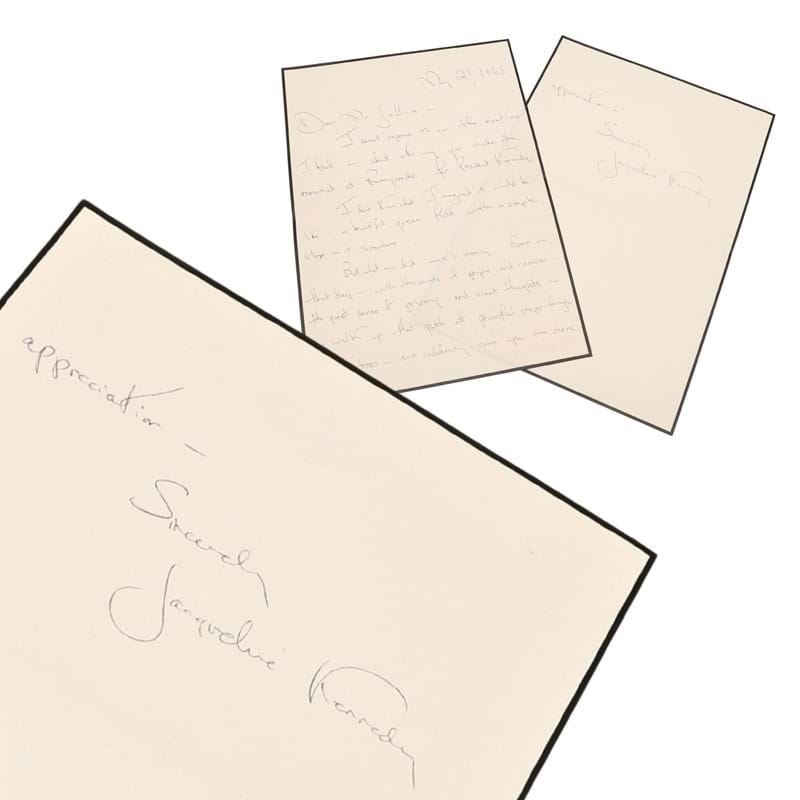 May 21, 1965
Dear Mr.
I cannot express to you the emotions
I felt — at you make the
memorial at Runnymede for President Kennedy
I had I imagined it would be
like — a beautiful green field with a simple
stone on it somewhere —
But what you did was so moving. Even on
that day — with thousands of people and cameras —
the great sense of privacy and silent thoughts as
walk up that path of peaceful steps through
trees — and suddenly come upon the stone
appreciation —
Sincerely
Jacqueline Kennedy
appreciation —
Sincerely
Jacqueline Kennedy